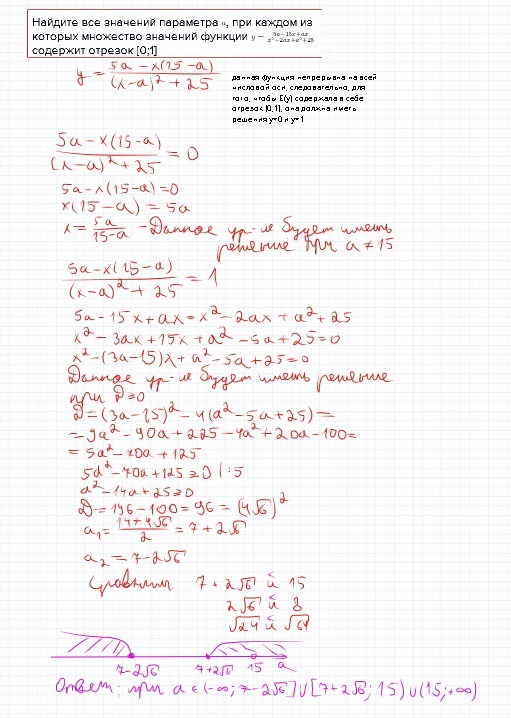 Найдите все значения параметра a, при каждом из
которых множество значений функции y = (5a−15x+ax)/(x²−2ax+a²+25)
содержит отрезок [0;1]
y = (5a − x(15−a))/((x−a)² + 25)
данная функция непрерывна на всей
числовой оси, следовательно, для
того, чтобы E(y) содержала в себе
отрезок [0,1], она должна иметь
решения y=0 и y=1
(5a − x(15−a))/((x−a)² + 25) = 0
5a − x(15−a) = 0
x(15−a) = 5a
x = 5a/(15−a) – Данное ур-ие будет иметь
решение при a ≠ 15
(5a − x(15−a))/((x−a)² + 25) = 1
5a − 15x + ax = x² − 2ax + a² + 25
x² − 3ax + 15x + a² − 5a + 25 = 0
x² − (3a−15)x + a² − 5a + 25 = 0
Данное ур-ие будет иметь решение
при D ≥ 0
D = (3a−15)² − 4(a² − 5a + 25) =
= 9a² − 90a + 225 − 4a² + 20a − 100 =
= 5a² − 70a + 125
5a² − 70a + 125 ≥ 0 |:5
a² − 14a + 25 ≥ 0
D = 196 − 100 = 96 = (4√6)²
a₁ = (14+4√6)/2 = 7 + 2√6
a₂ = 7 − 2√6
Сравним 7 + 2√6 и < 15
2√6 и < 8
√24 и < √64
7−2√6 7+2√6 15 a
Ответ: при a ∈ (−∞; 7−2√6] ∪ [7+2√6; 15) ∪ (15; +∞)